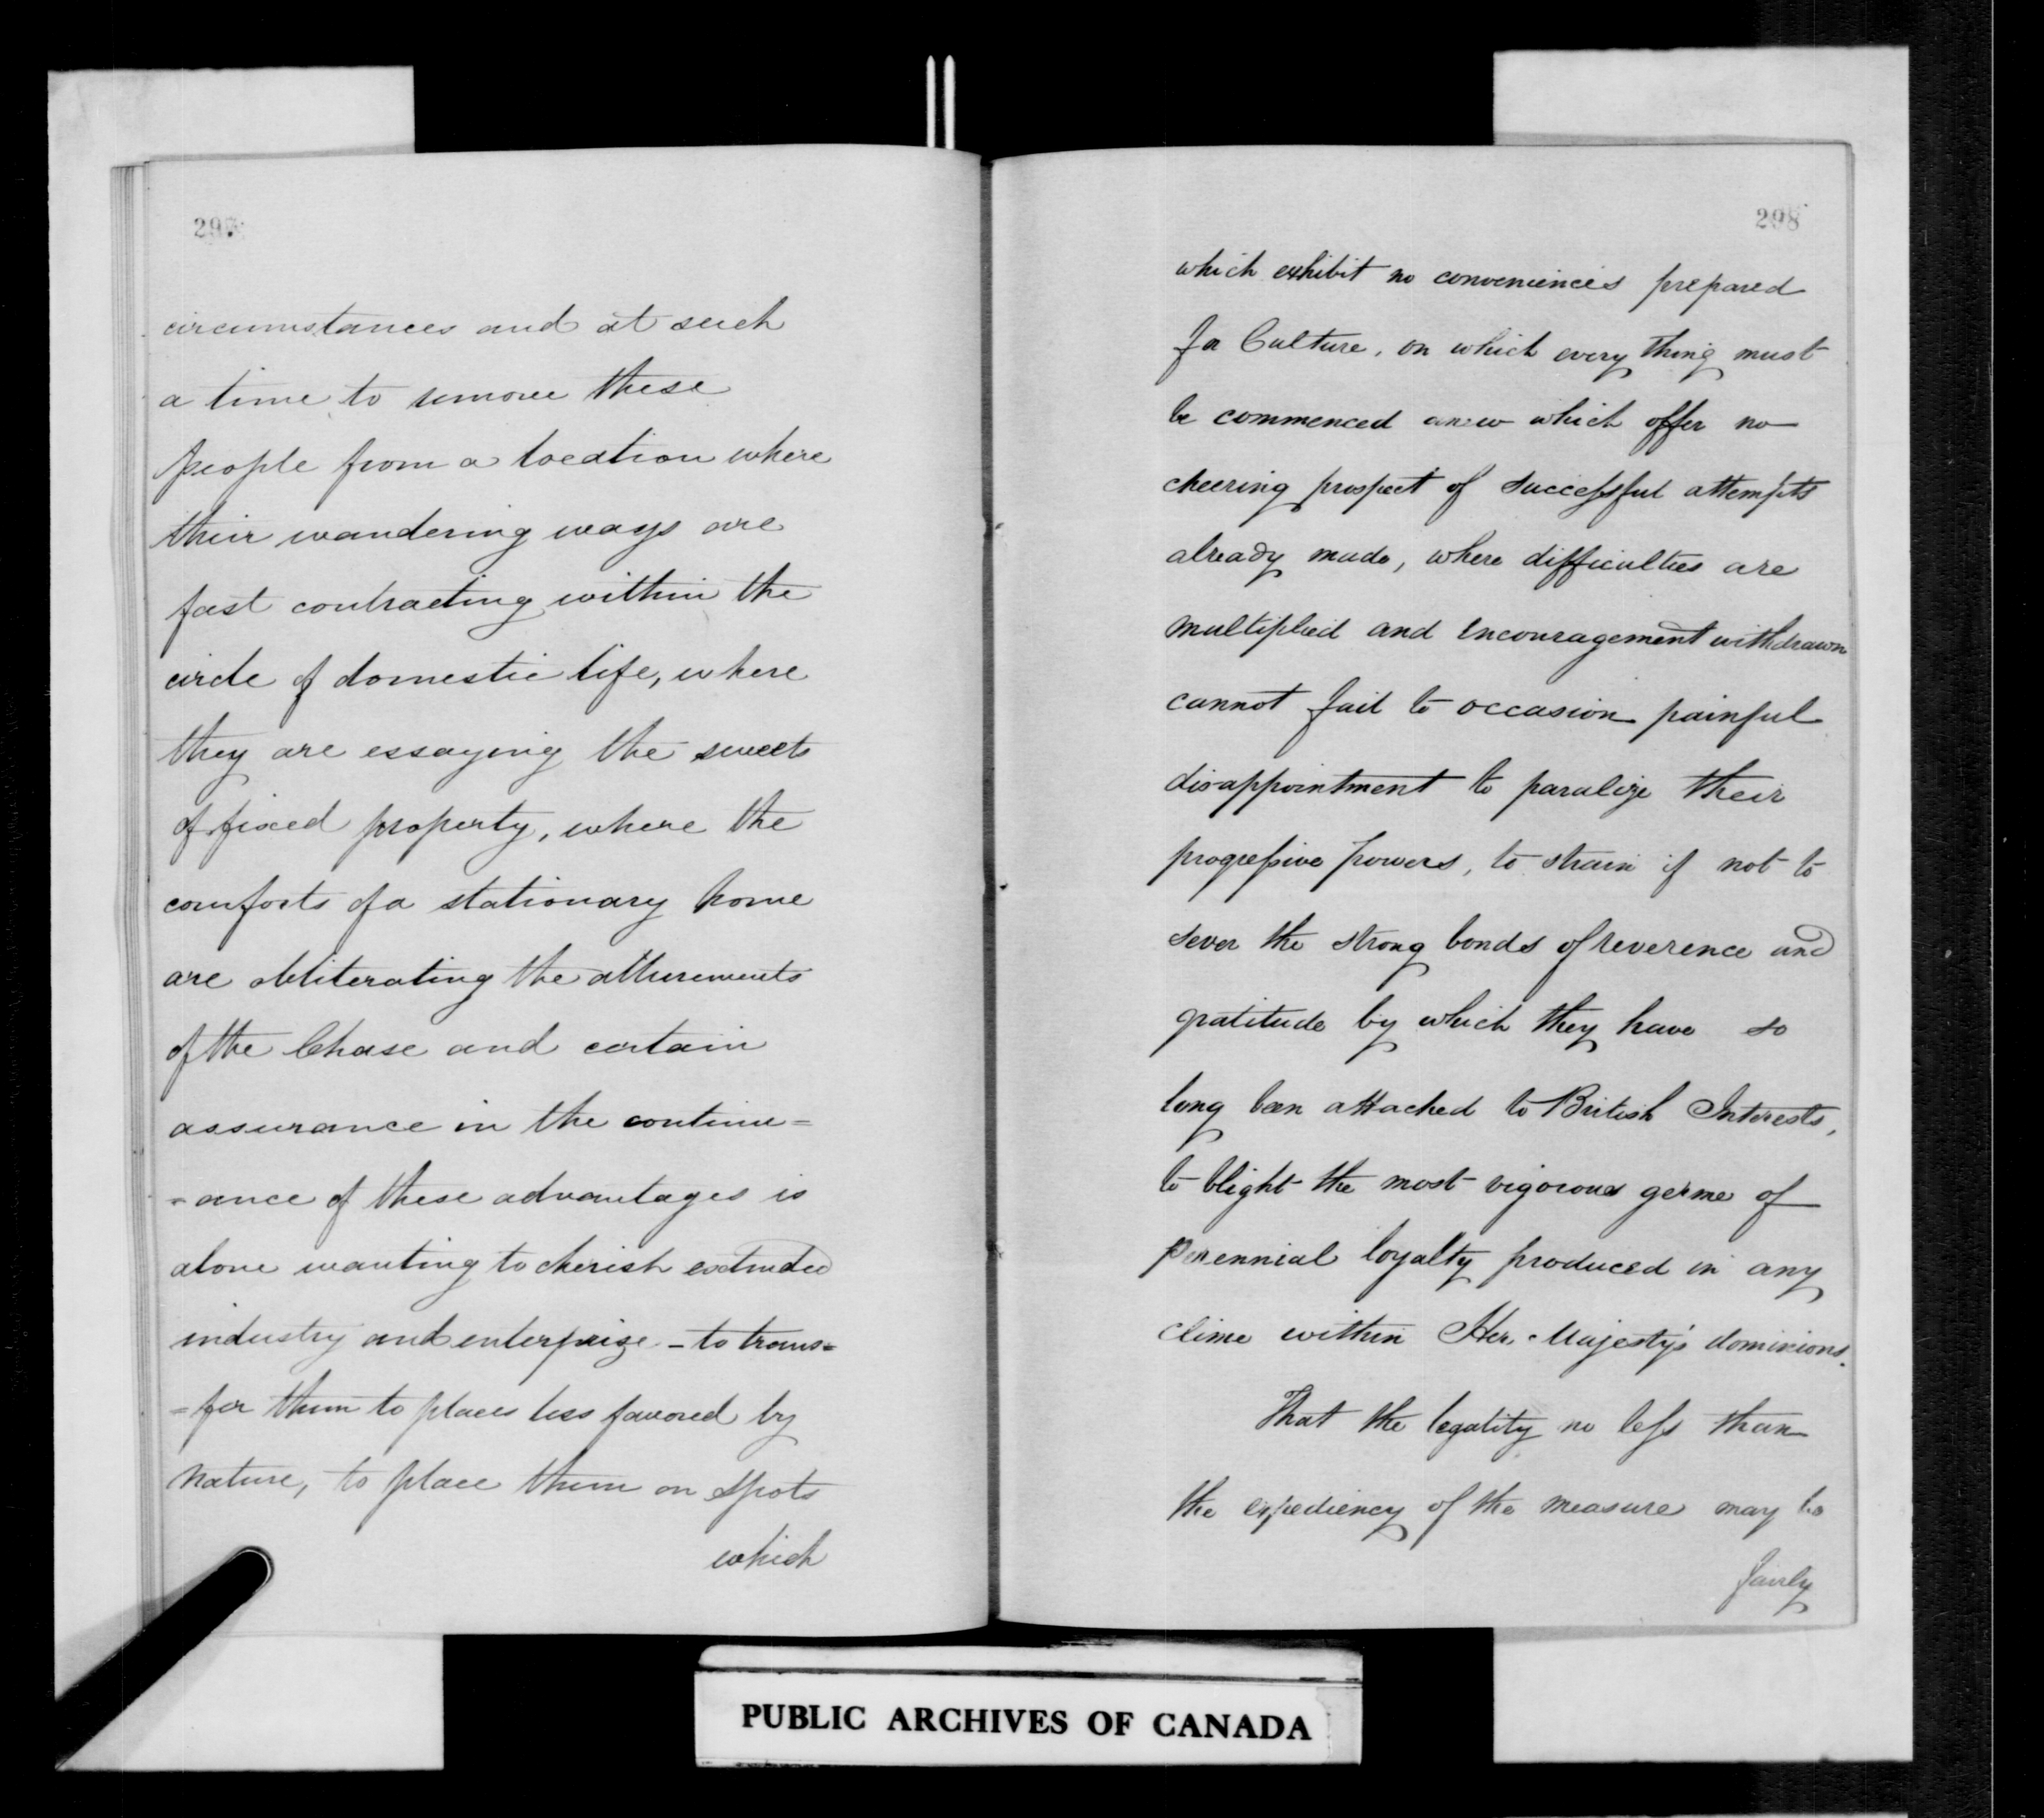 297
circumstances and at such
a time to remove these
people from a location where
their wandering ways are
fast contracting within the
circle of domestic life, where
they are essaying the sweets
of fixed property, where the
comforts of a stationary home
are obliterating the allurements
of the Chase and certain
assurance in the continu=
=ance of these advantages is
alone wanting to cherish extended
industry and enterprize - to trans=
=fer them to places less favored by
nature, to place them on spots
which
298
which exhibit no conveniences prepared
for Culture, on which every thing must
be commenced anew which offer no
cheering prospect of successful attempts
already made, where difficulties are
multiplied and encouragement withdrawn
cannot fail to occasion painful
disappointment to paralize their
progressive powers, to strain if not to
sever the strong bonds of reverence and
gratitude by which they have so
long been attached to British Interests,
to blight the most vigorous germe of
perennial loyalty produced in any
clime within Her Majesty's dominions.
That the legality no less than
the expediency of the measure may be
fairly
PUBLIC ARCHIVES OF CANADA